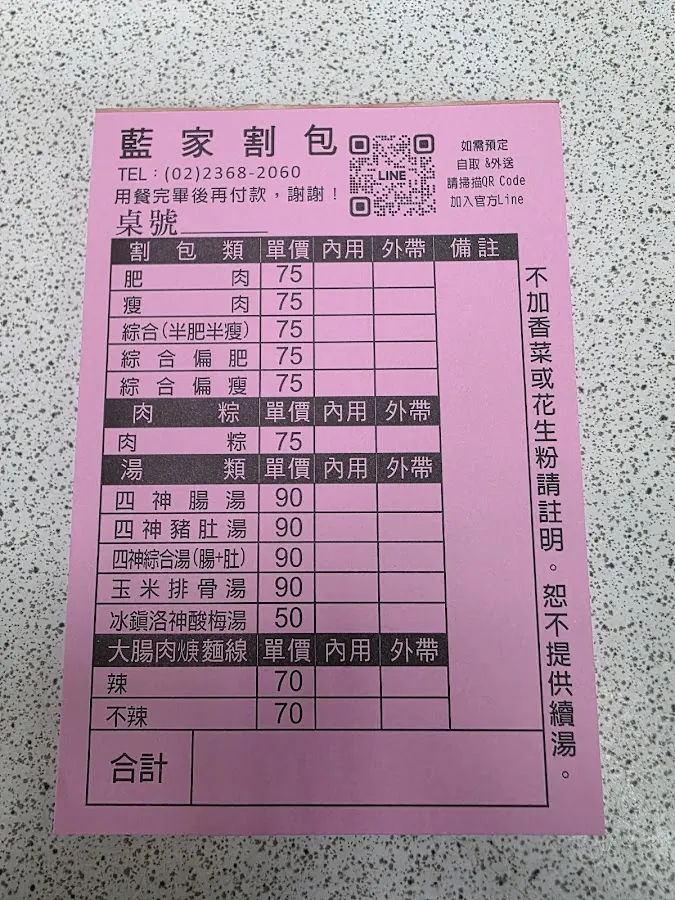 藍家割包
TEL：(02)2368-2060
用餐完畢後再付款，謝謝！
桌號
LINE
如需預定
自取&外送
請掃描QR Code
加入官方Line
割包類 單價 內用 外帶 備註
肥肉 75
瘦肉 75
綜合(半肥半瘦) 75
綜合偏肥 75
綜合偏瘦 75
肉粽 單價 內用 外帶
肉粽 75
湯類 單價 內用 外帶
四神腸湯 90
四神豬肚湯 90
四神綜合湯(腸+肚) 90
玉米排骨湯 90
冰鎮洛神酸梅湯 50
大腸肉焿麵線 單價 內用 外帶
辣 70
不辣 70
合計
不加香菜或花生粉請註明。恕不提供續湯。